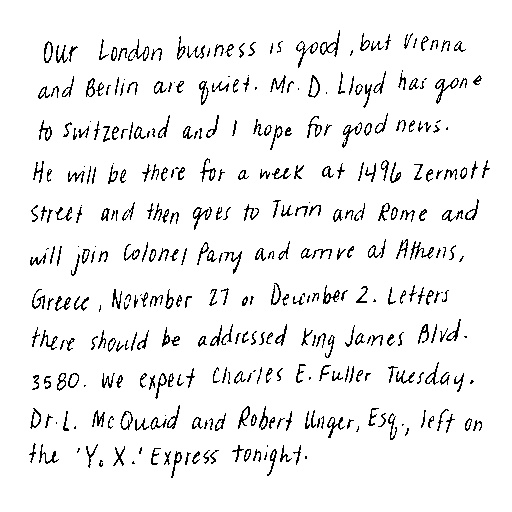 Our London business is good, but Vienna
and Berlin are quiet. Mr. D. Lloyd has gone
to Switzerland and I hope for good news.
He will be there for a week at 1496 Zermott
Street and then goes to Turin and Rome and
will join Colonel Parry and arrive at Athens,
Greece, November 27 or December 2. Letters
there should be addressed King James Blvd.
3580. We expect Charles E. Fuller Tuesday.
Dr. L. McQuaid and Robert Unger, Esq., left on
the 'Y. X.' Express tonight.